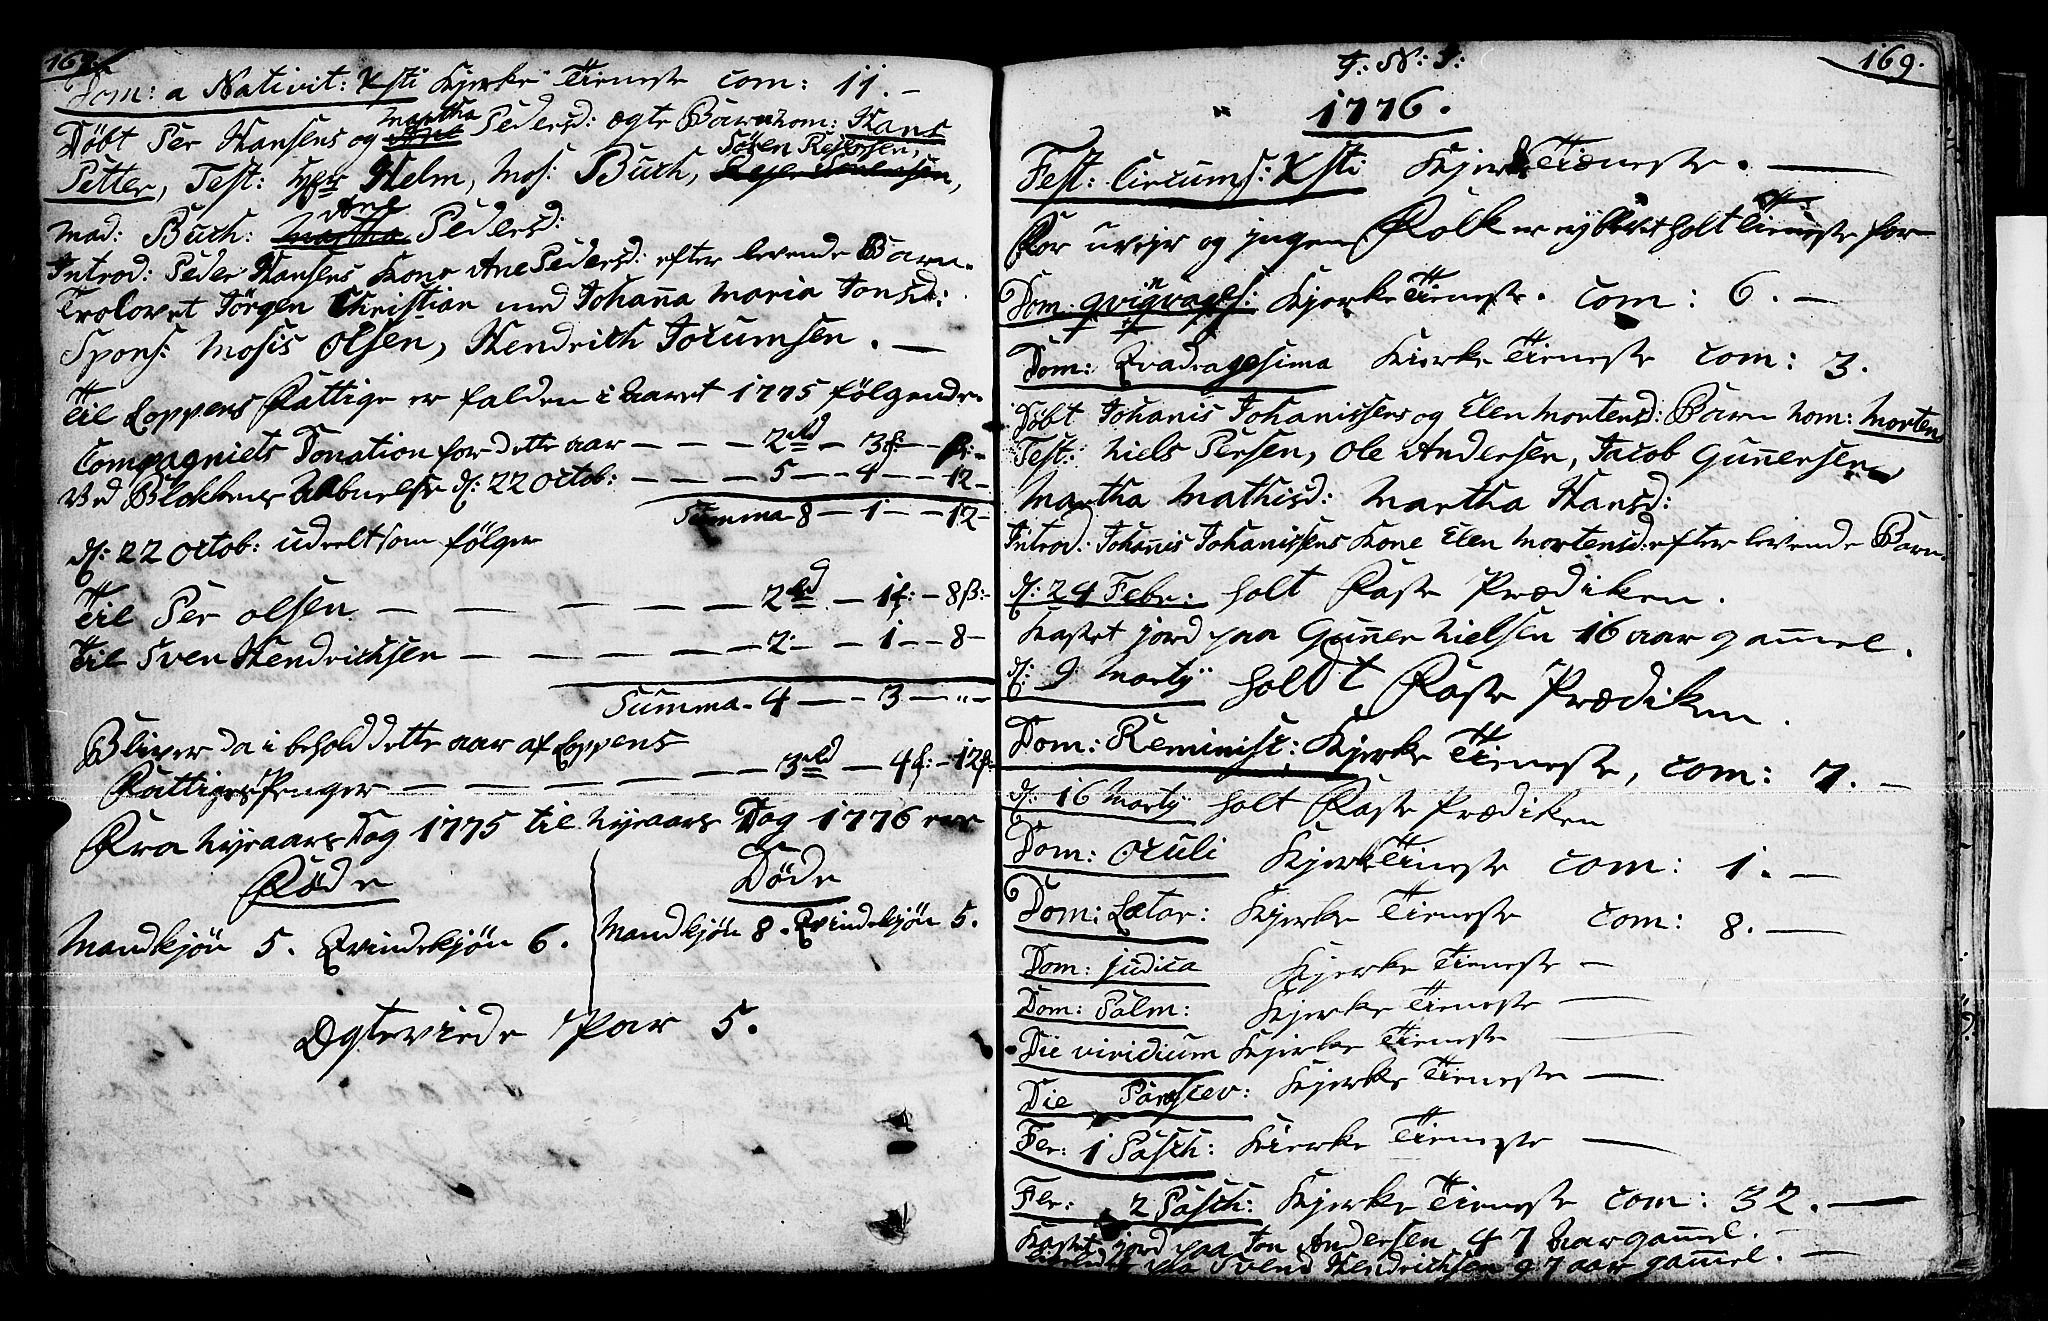 168.
Dom: a Nativit: Xsti Kjerke Tieneste com: 11. -
Martha
Døbt Per Hansens og Ane Pedersd: ægte Barn nom: Hans
Søren Rejersen,
Petter, Test: Hr Helm, Mos: Buch,
Ane
Mad: Buch: Martha Pedersd:
Introd: Peder Hansens Kone Ane Pedersd: efter levende Barn.
Trolovet Jörgen Christian med Johanna Maria Jonsd:
Spons: Mosis Olsen, Hendrich Jocumsen. —
Til Loppens Fattige er falden i Aaret 1775 følgende
Compagniets Donation for dette aar — — — 2 rd — 3 f: — ß: -
Ved Blokkens Aabnelse d: 22 Octob: — — — 5 — 4 — 12 -
Summa 8 — 1 — 12 -
d: 22 Octob: udeelt som følger
Til Per Olsen — — — — — 2 rd — 1 f: — 8 ß: -
Til Sven Hendrichsen — — — — — 2 — 1 — 8 -
Summa - 4 — 3 — " -
Bliver da i behold dette aar af Loppens
Fattiges Penger — — — — — 3 rd — 4 f: — 12 ß -
Fra Nyeaars Dag 1775 til Nyeaars Dag 1776 ere
Føde Døde
Mandkjøn 5. Qvindekjøn 6. Mandkjøn 8. Qvindekjøn 5.
Ægteviede Par 5.
169.
J: N: J:
1776.
Fest: Circums: Xsti Kjerke Tieneste. —
For uvejr og ingen Folk er ej blevet holt Tieneste for
Dom: qvinqvages: Kjerke Tieneste. com: 6. —
Dom: Qvadragesima Kierke Tieneste com: 3.
Døbt Johanis Johanissens og Elen Mortensd: Barn nom: Morten
Test: Niels Persen, Ole Andersen, Jacob Gunnersen
Martha Mathisd: Martha Hansd:
Introd: Johanis Johanissens Kone Elen Mortensd: efter levende Barn.
d: 24 Febr: holt Faste Prædiken.
Kastet jord paa Gunner Nielsen 16 aar gammel.
d: 9 Martij holdt Faste Prædiken.
Dom: Reminisc: Kjerke Tieneste, com: 7. -
d: 16 Martij holt Faste Prædiken
Dom: Oculi Kjerke Tieneste com: 1. —
Dom: Lætar: Kjerke Tieneste com: 8. —
Dom: judica Kjerke Tieneste —
Dom: Palm: Kjerke Tieneste —
Die viridium Kjerke Tieneste —
Die Parascev: Kjerke Tieneste —
Fer: 1 Pasch: Kierke Tieneste —
Fer: 2 Pasch: Kjerke Tieneste com: 32. —
Kastet jord paa Jon Andersen 47 Aar gammel. -
paa Svend Hendrichsen 97 aar gammel. —